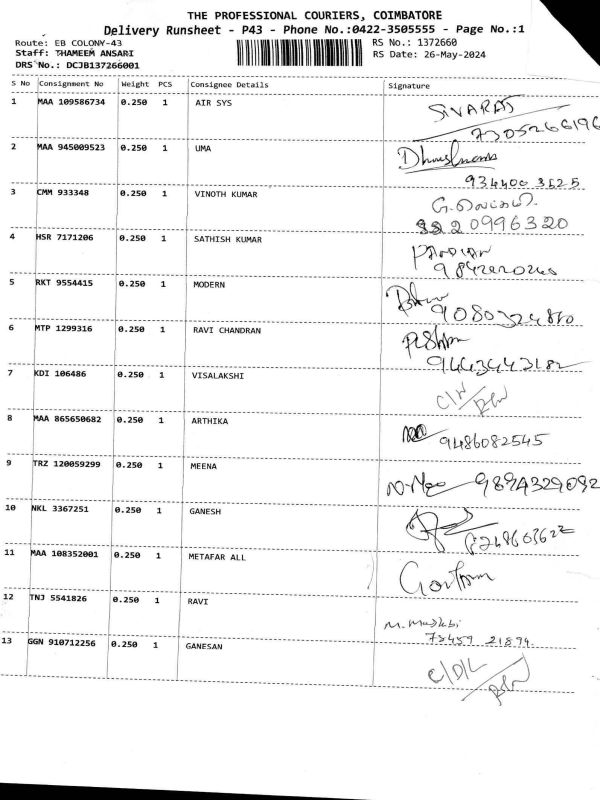 THE PROFESSIONAL COURIERS, COIMBATORE
Delivery Runsheet - P43 - Phone No.:0422-3505555 - Page No.:1
Route: EB COLONY-43
RS No.: 1372660
Staff: THAMEEM ANSARI
RS Date: 26-May-2024
DRS No.: DCJB137266001
S No Consignment No Weight PCS Consignee Details Signature
1 MAA 109586734 0.250 1 AIR SYS SIVARAJ
7305266196
2 MAA 945009523 0.250 1 UMA
934400 3525
3 CMM 933348 0.250 1 VINOTH KUMAR
0996320
4 HSR 7171206 0.250 1 SATHISH KUMAR
5 RKT 9554415 0.250 1 MODERN
6 MTP 1299316 0.250 1 RAVI CHANDRAN
9443443182
7 KDI 106486 0.250 1 VISALAKSHI
8 MAA 865650682 0.250 1 ARTHIKA
9486082545
9 TRZ 120059299 0.250 1 MEENA
9894329092
10 NKL 3367251 0.250 1 GANESH
11 MAA 108352001 0.250 1 METAFAR ALL
12 TNJ 5541826 0.250 1 RAVI
73459 21894
13 GGN 910712256 0.250 1 GANESAN C/D/L